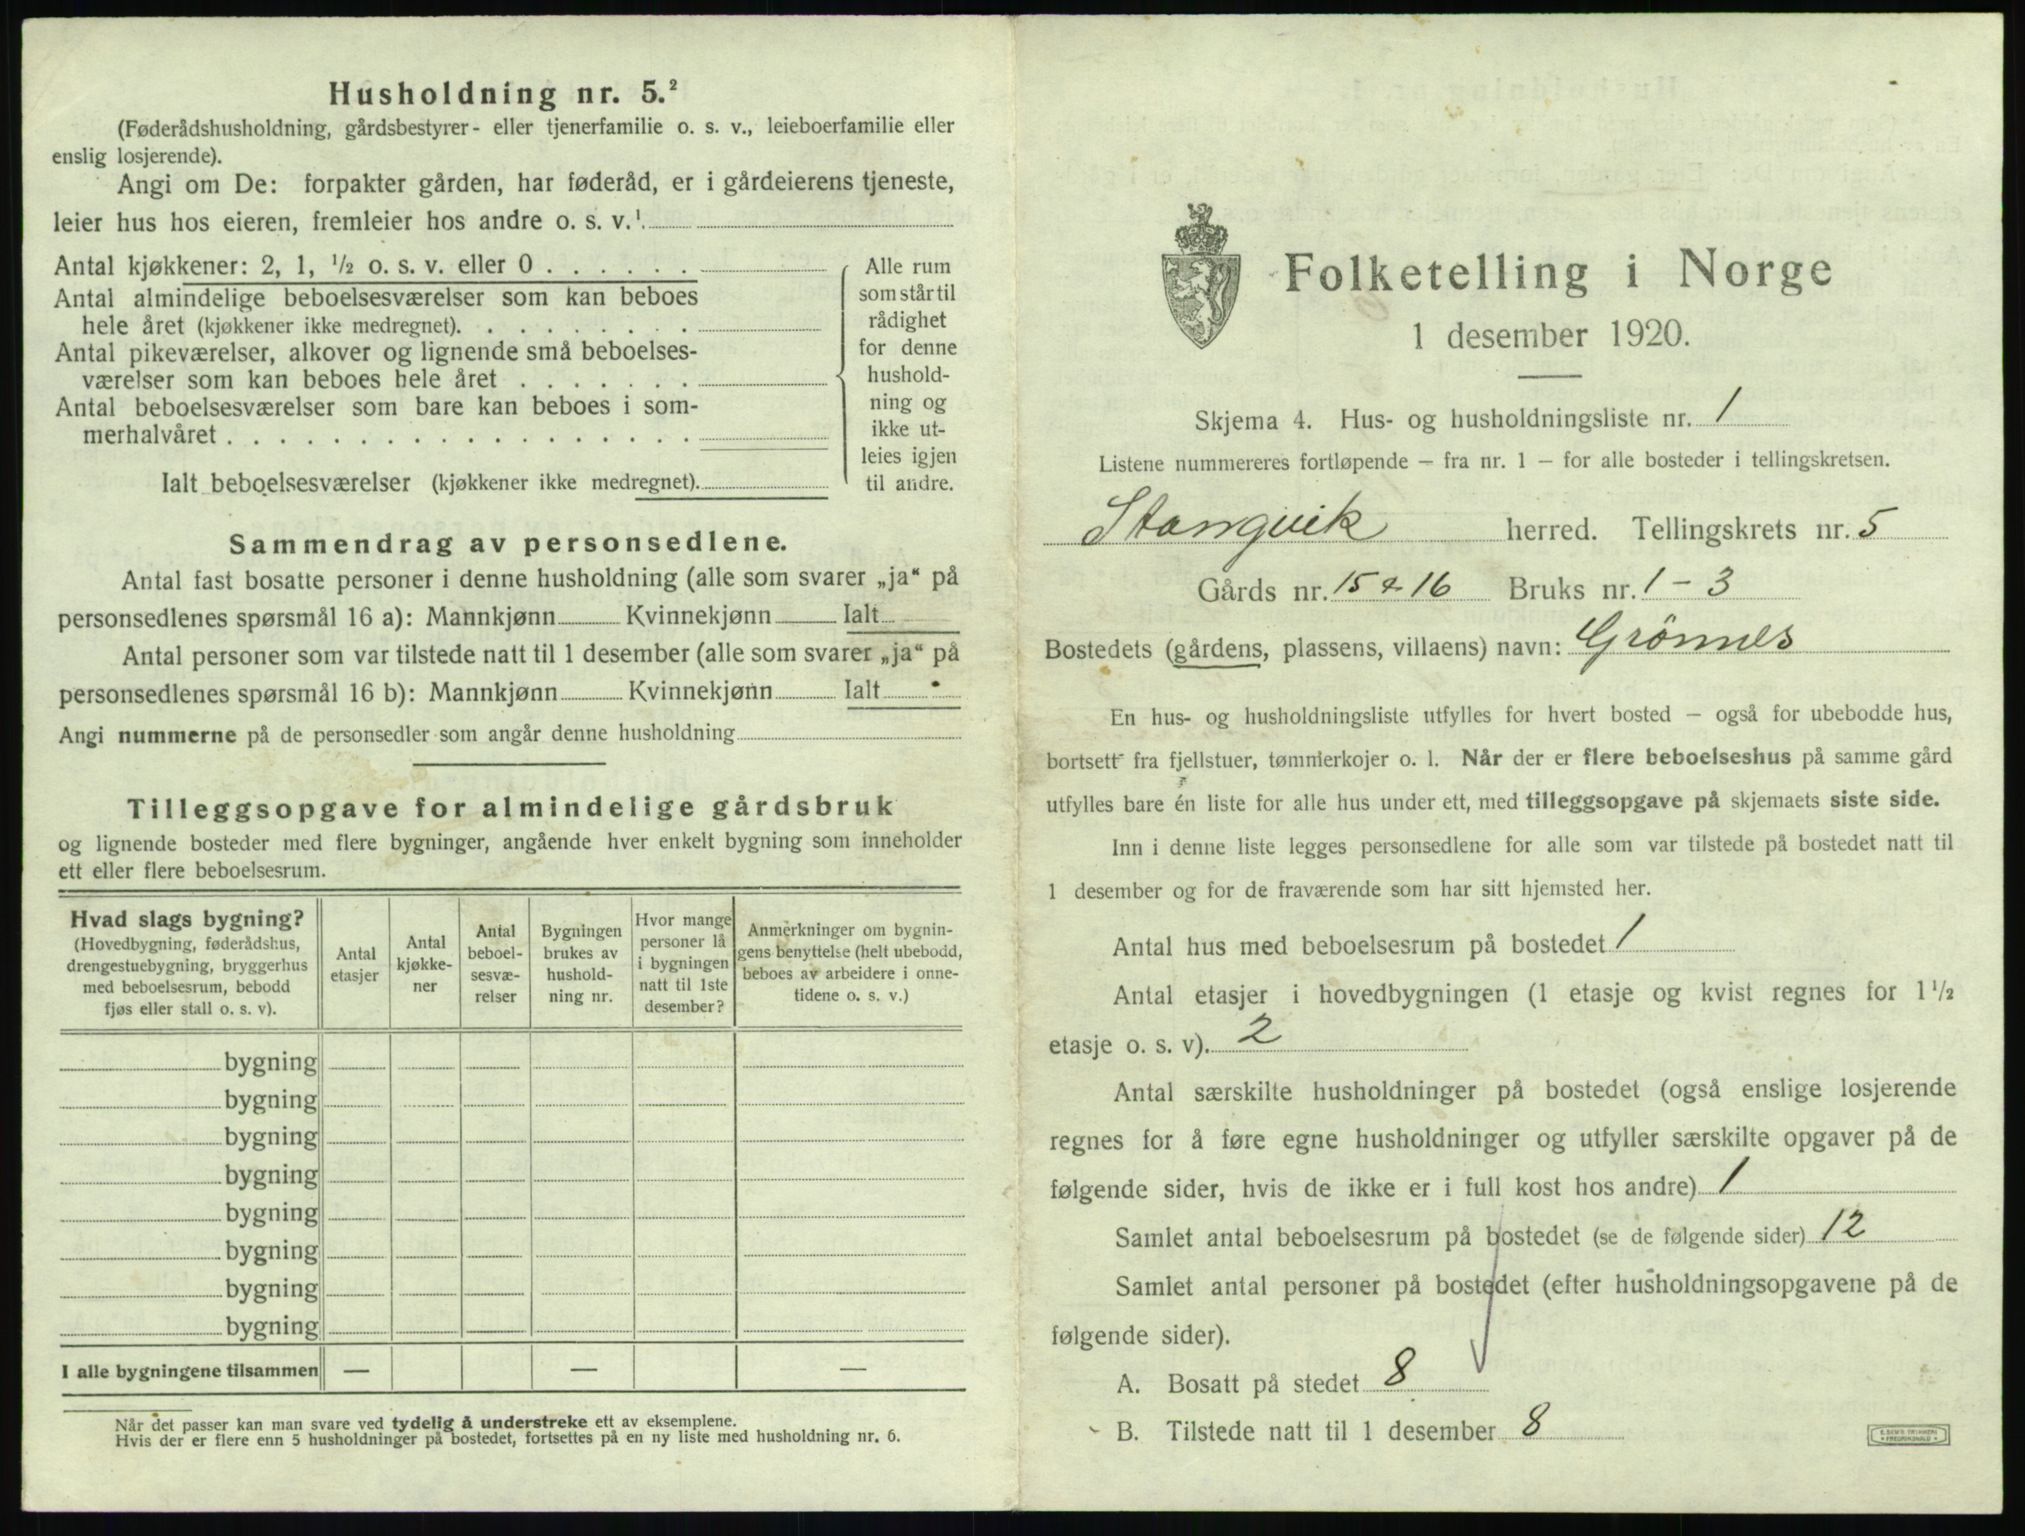 Husholdning nr. 5.²
(Føderådshusholdning, gårdsbestyrer- eller tjenerfamilie o. s. v., leieboerfamilie eller
enslig losjerende).
Angi om De: forpakter gården, har føderåd, er i gårdeierens tjeneste,
leier hus hos eieren, fremleier hos andre o. s. v.¹
Antal kjøkkener: 2, 1, ½ o. s. v. eller 0 . . . . . .
Antal almindelige beboelsesværelser som kan beboes
hele året (kjøkkener ikke medregnet). . . . . . . . .
Antal pikeværelser, alkover og lignende små beboelses-
værelser som kan beboes hele året . . . . . . .
Antal beboelsesværelser som bare kan beboes i som-
merhalvåret . . . . . . . . . . . . . . . . . .
Ialt beboelsesværelser (kjøkkener ikke medregnet).
Alle rum
som står til
rådighet
for denne
hushold-
ning og
ikke ut-
leies igjen
til andre.
Sammendrag av personsedlene.
Antal fast bosatte personer i denne husholdning (alle som svarer „ja“ på
personsedlenes spørsmål 16 a): Mannkjønn Kvinnekjønn Ialt
Antal personer som var tilstede natt til 1 desember (alle som svarer „ja“ på
personsedlenes spørsmål 16 b): Mannkjønn Kvinnekjønn Ialt
Angi nummerne på de personsedler som angår denne husholdning
Tilleggsopgave for almindelige gårdsbruk
og lignende bosteder med flere bygninger, angående hver enkelt bygning som inneholder
ett eller flere beboelsesrum.
Hvad slags bygning?
(Hovedbygning, føderådshus,
drengestuebygning, bryggerhus
med beboelsesrum, bebodd
fjøs eller stall o. s. v).
Antal
etasjer
Antal
kjøkke-
ner
Antal
beboel-
sesvæ-
relser
Bygningen
brukes av
hushold-
ning nr.
Hvor mange
personer lå
i bygningen
natt til 1ste
desember?
Anmerkninger om bygnin-
gens benyttelse (helt ubebodd,
beboes av arbeidere i onne-
tidene o. s. v.)
bygning
bygning
bygning
bygning
bygning
bygning
bygning
bygning
I alle bygningene tilsammen — — —
Når det passer kan man svare ved tydelig å understreke ett av eksemplene.
Hvis der er flere enn 5 husholdninger på bostedet, fortsettes på en ny liste med husholdning nr. 6.
Folketelling i Norge
1 desember 1920.
Skjema 4. Hus- og husholdningsliste nr. 1
Listene nummereres fortløpende – fra nr. 1 – for alle bosteder i tellingskretsen.
Stangvik herred. Tellingskrets nr. 5
Gårds nr. 15 & 16 Bruks nr. 1 – 3
Bostedets (gårdens, plassens, villaens) navn: Grönnes
En hus- og husholdningsliste utfylles for hvert bosted – også for ubebodde hus,
bortsett fra fjellstuer, tømmerkojer o. l. Når der er flere beboelseshus på samme gård
utfylles bare én liste for alle hus under ett, med tilleggsopgave på skjemaets siste side.
Inn i denne liste legges personsedlene for alle som var tilstede på bostedet natt til
1 desember og for de fraværende som har sitt hjemsted her.
Antal hus med beboelsesrum på bostedet 1
Antal etasjer i hovedbygningen (1 etasje og kvist regnes for 1½
etasje o. s. v). 2
Antal særskilte husholdninger på bostedet (også enslige losjerende
regnes for å føre egne husholdninger og utfyller særskilte opgaver på de
følgende sider, hvis de ikke er i full kost hos andre) 1
Samlet antal beboelsesrum på bostedet (se de følgende sider) 12
Samlet antal personer på bostedet (efter husholdningsopgavene på de
følgende sider).
A. Bosatt på stedet 8
B. Tilstede natt til 1 desember 8